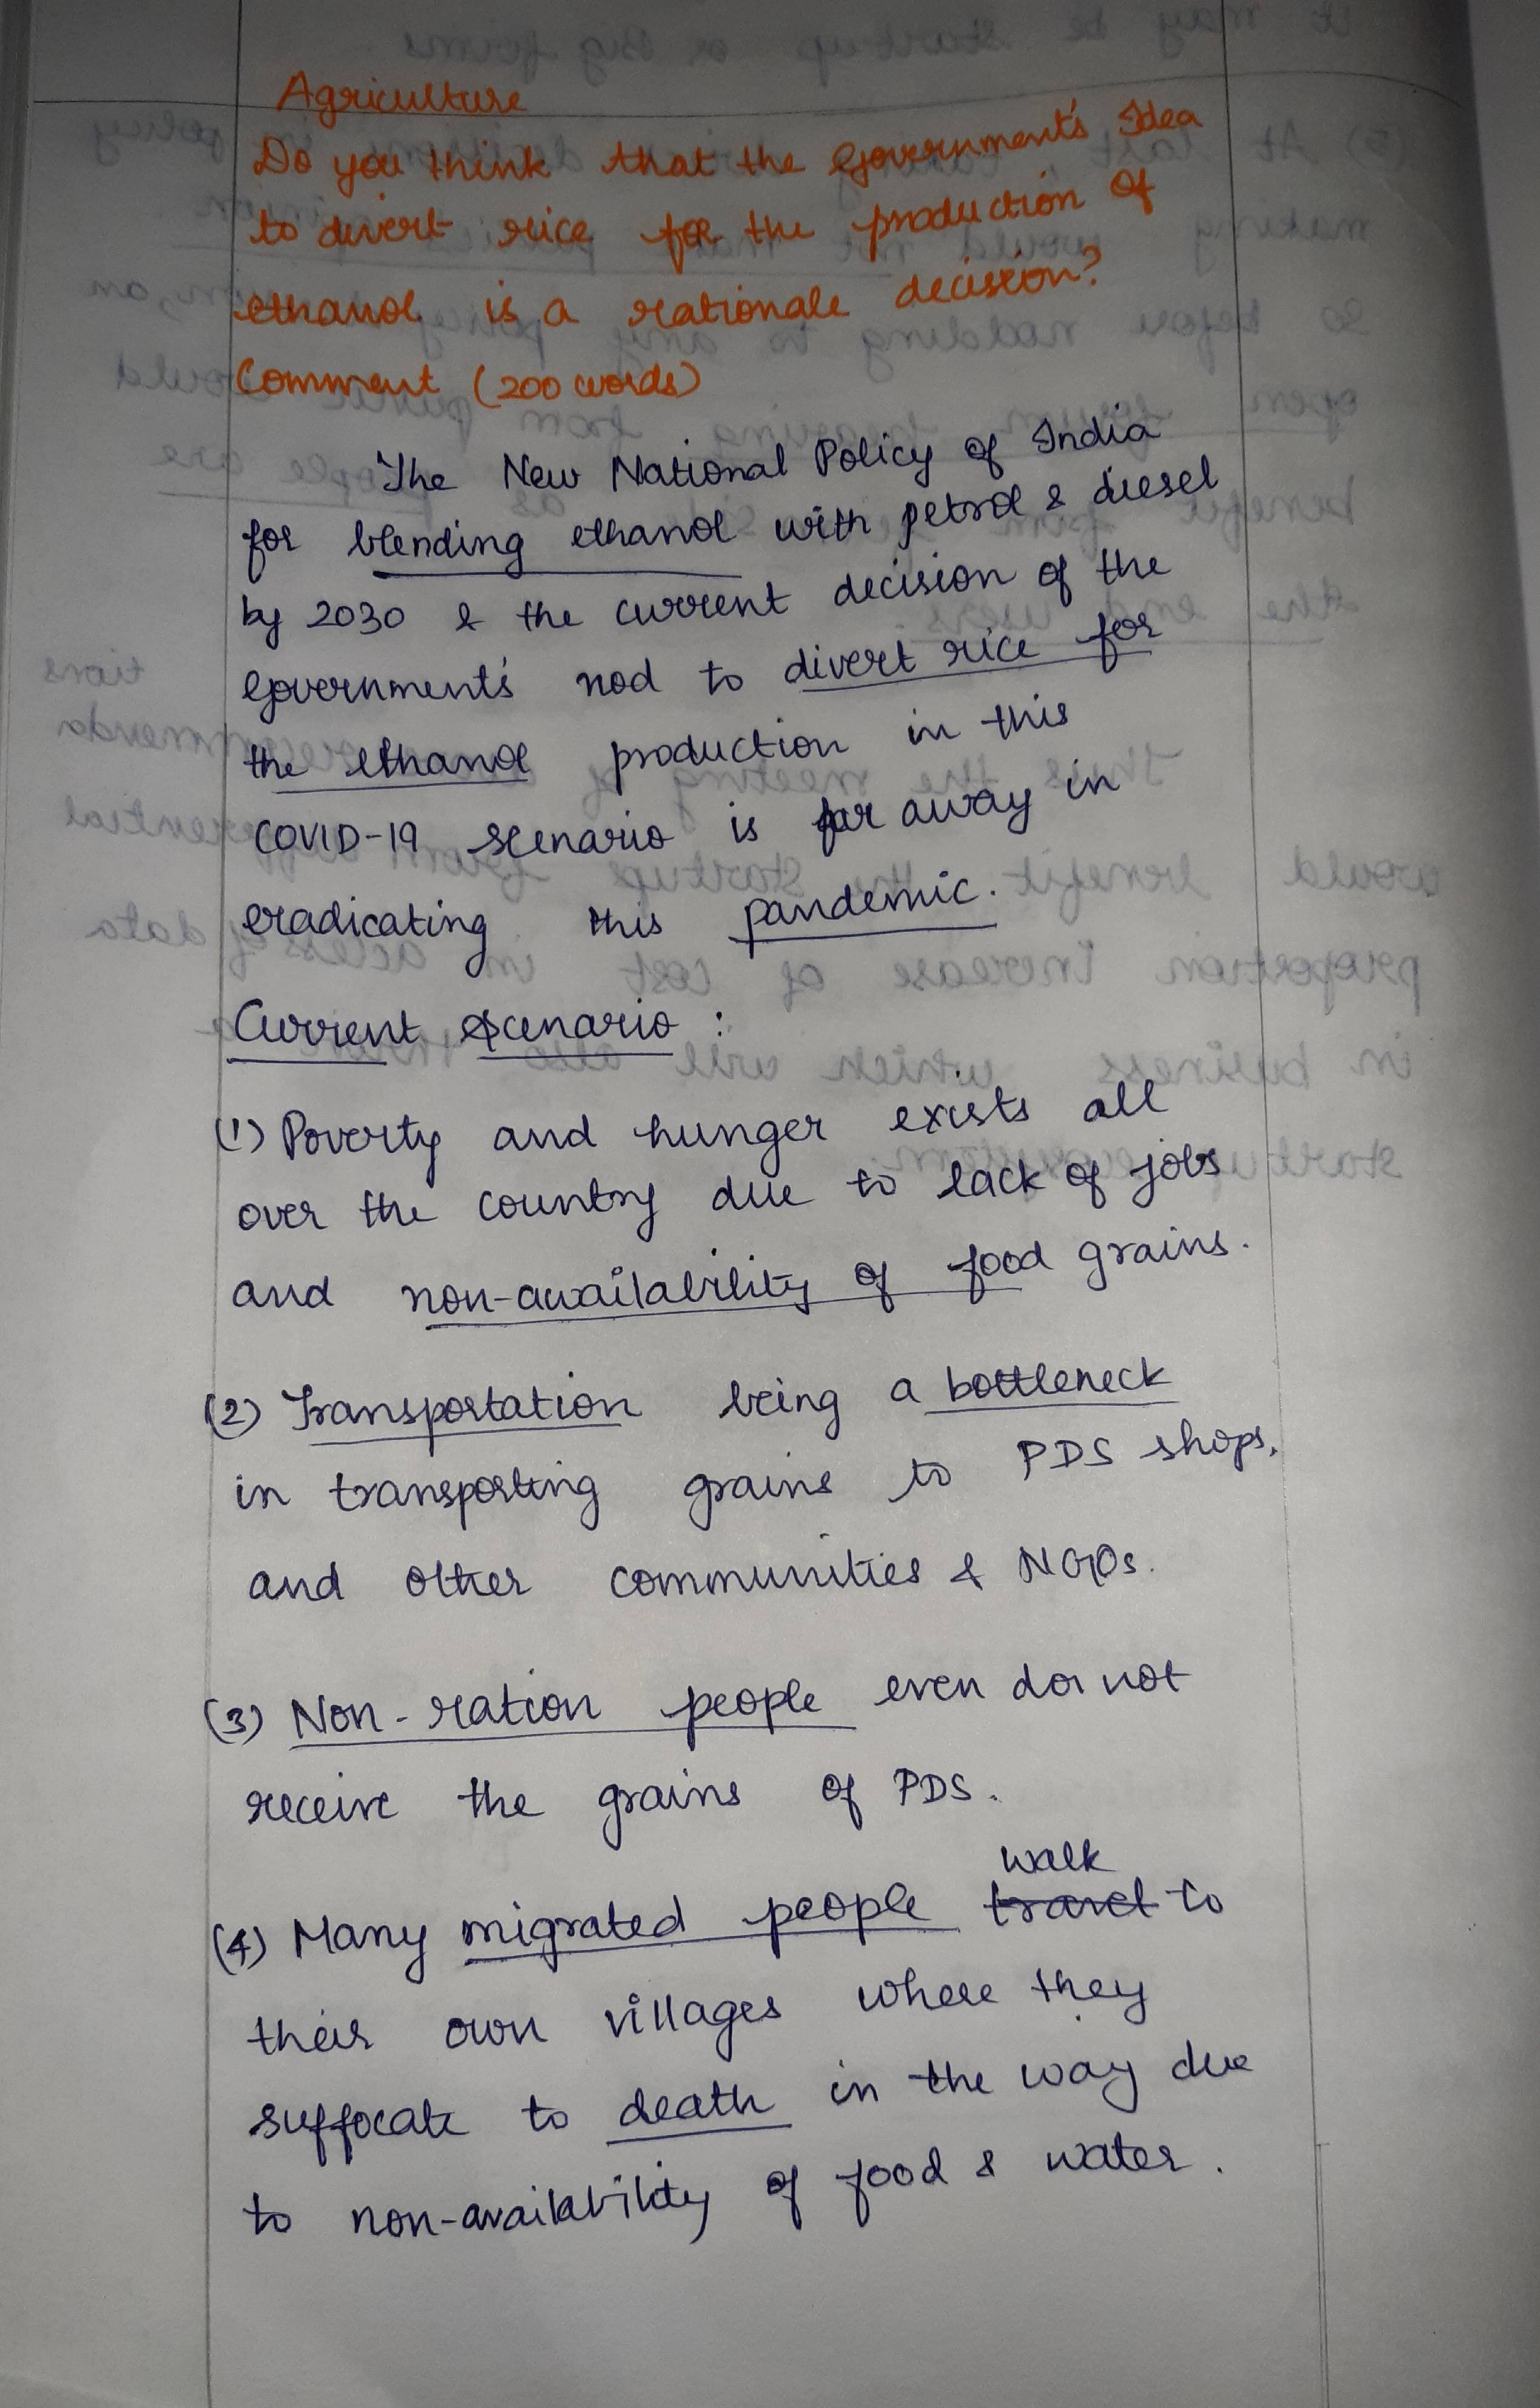 Agriculture
Do you think that the Government's Idea
to divert rice for the production of
ethanol is a rationale decision?
Comment (200 words)
The New National Policy of India
for blending ethanol with petrol & diesel
by 2030 & the current decision of the
Government's nod to divert rice for
the ethanol production in this
COVID-19 scenario is far away in
eradicating this pandemic.
Current Scenario :
(1) Poverty and hunger exists all
over the country due to lack of jobs
and non-availability of food grains.
(2) Transportation being a bottleneck
in transporting grains to PDS shops,
and other communities & NGOs.
(3) Non-ration people even do not
receive the grains of PDS.
walk
(4) Many migrated people travel to
their own villages where they
suffocate to death in the way due
to non-availability of food & water.